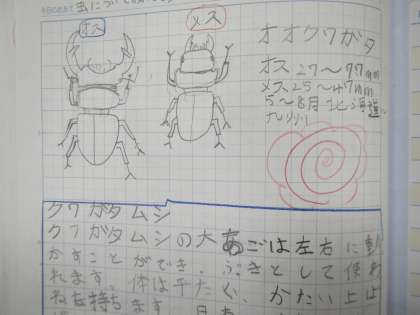 虫について
オス
メス
オオクワガタ
オス27〜77mm
メス25〜47mm
5〜8月北海道〜
九州
クワガタムシ
クワガタムシの大あごは左右に動
かすことができ、ぶきとして使わ
れます。体は平たく、かたい上は
ねを持ちます。